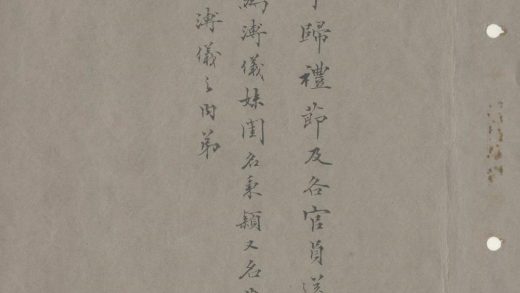 歸禮節及各官員送
溥儀妹閨名秉穎又名
溥儀之內弟